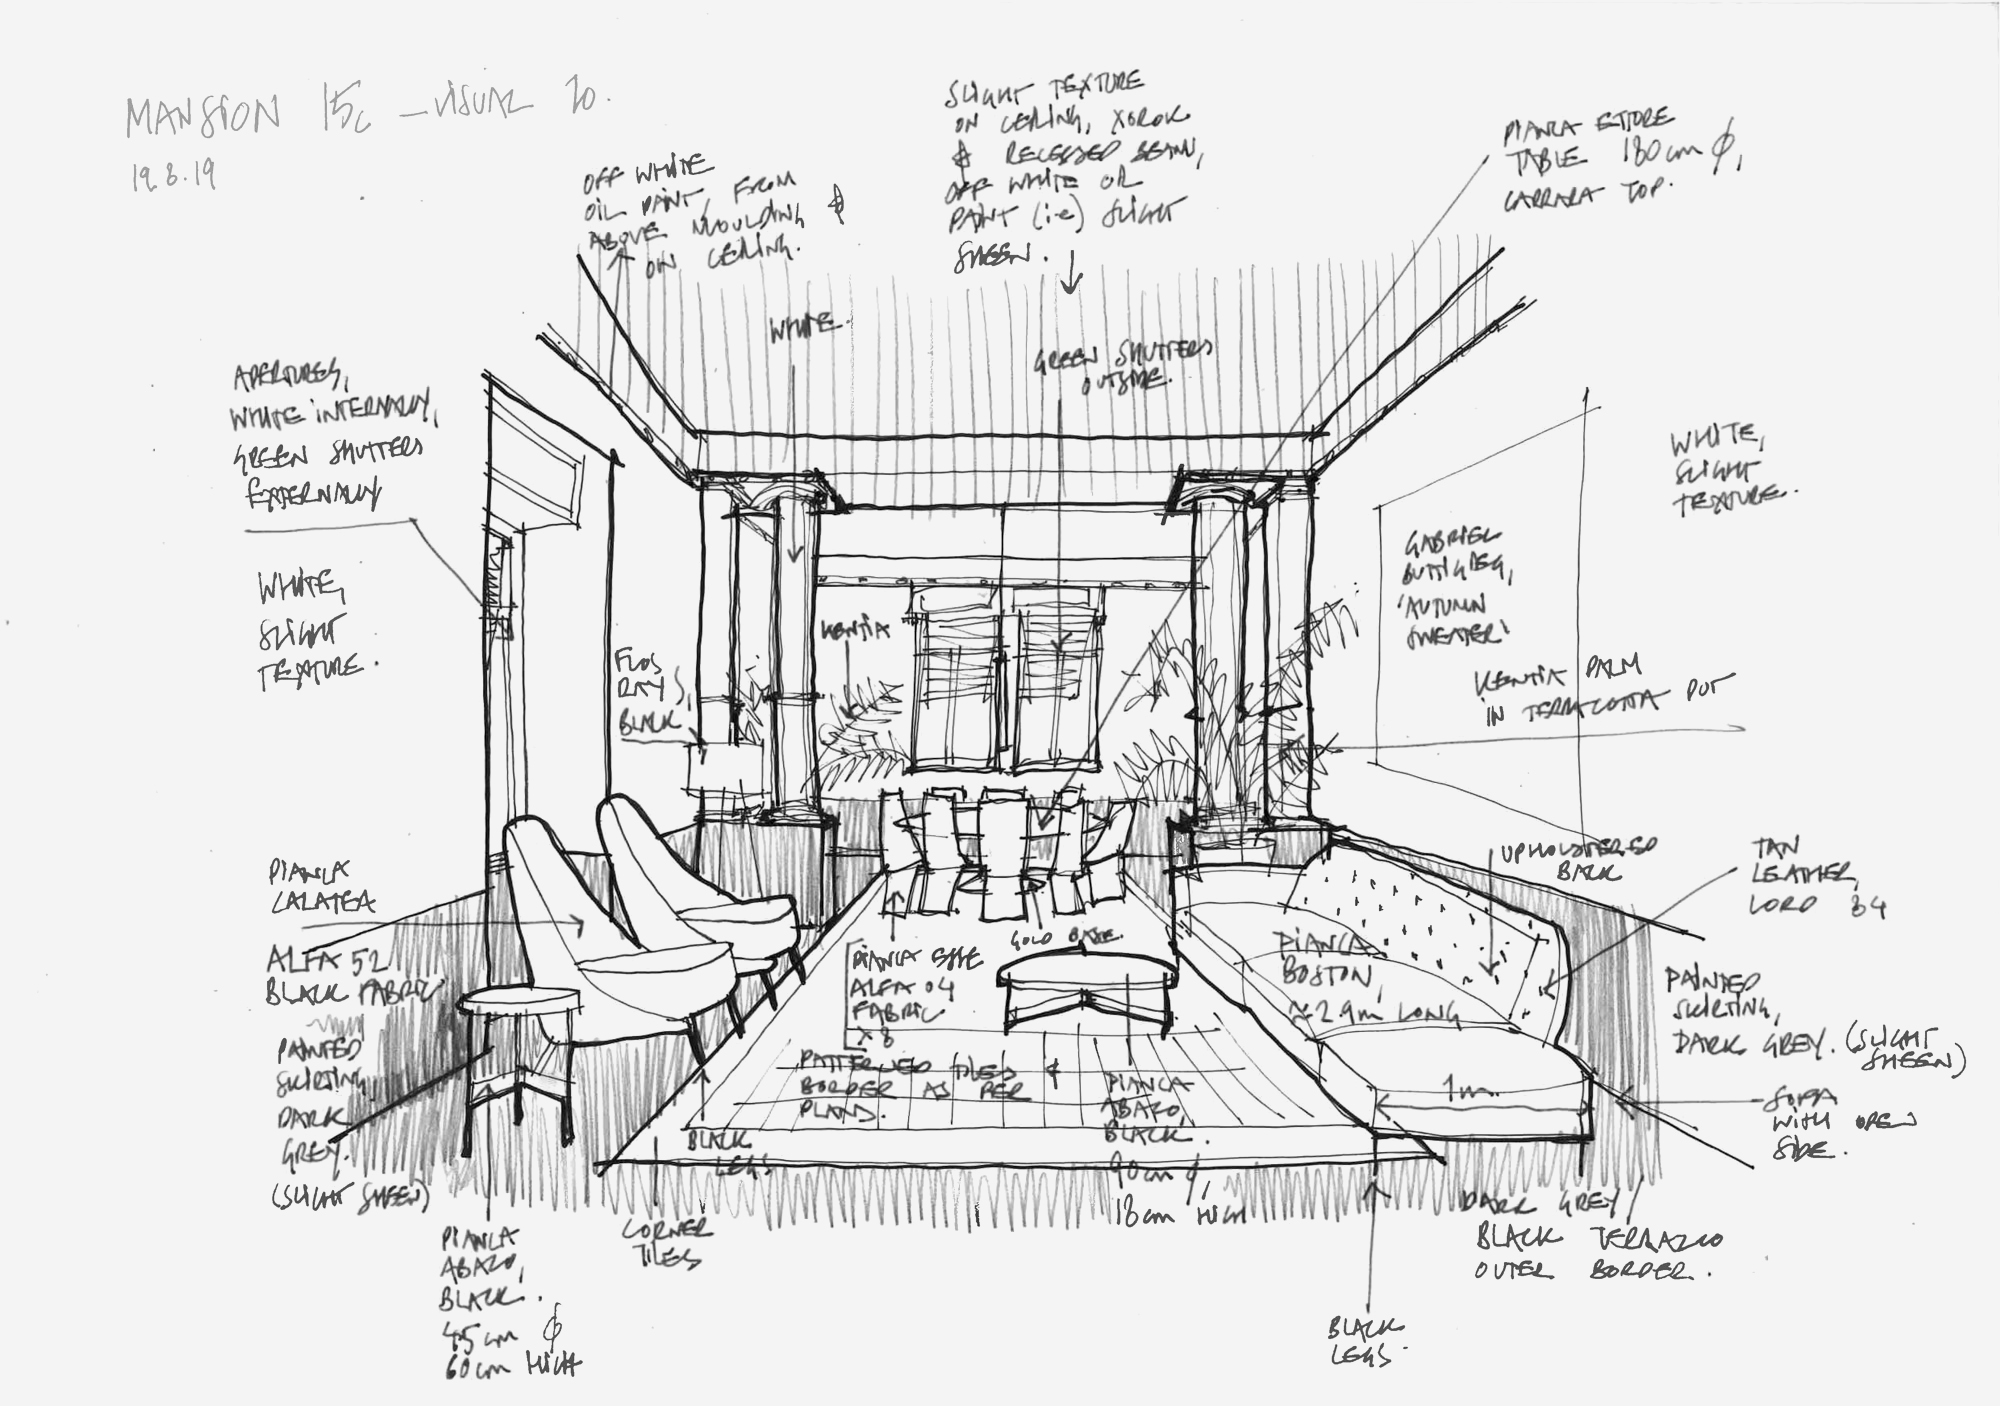 MANSION 15c - VISUAL 20.
19.8.19
OFF WHITE
OIL PAINT, FROM
ABOVE MOULDING &
ON CEILING.
SLIGHT TEXTURE
ON CEILING, XOROK
& RECESSED BEAM,
OFF WHITE OIL
PAINT (i.e) SLIGHT
SHEEN.
PIANCA ETTORE
TABLE 180cm φ,
CARRARA TOP.
WHITE.
GREEN SHUTTERS
OUTSIDE.
APERTURES,
WHITE INTERNALLY,
GREEN SHUTTERS
EXTERNALLY
WHITE,
SLIGHT
TEXTURE.
WHITE,
SLIGHT
TEXTURE.
GABRIEL
BUTTIGIEG,
'AUTUMN
SWEATER'
KENTIA
FLOS
RAY S,
BLACK
KENTIA PALM
IN TERRACOTTA POT
PIANCA
CALATEA
ALFA 52
BLACK FABRIC
PAINTED
SKIRTING,
DARK
GREY.
(SLIGHT SHEEN)
UPHOLSTERED
BACK
TAN
LEATHER,
LORD 34
PIANCA
BOSTON,
≈2.9m LONG
GOLD BASE.
PIANCA
ALFA 04
FABRIC
x8
PATTERNED TILES &
BORDER AS PER
PLANS.
PIANCA
ABACO,
BLACK.
90cm φ,
18cm HIGH
1m
PAINTED
SKIRTING,
DARK GREY. (SLIGHT
SHEEN)
SOFA
WITH OPEN
SIDE.
BLACK
LEGS
CORNER
TILES
PIANCA
ABACO,
BLACK.
45cm φ
60cm HIGH
DARK GREY/
BLACK TERRAZZO
OUTER BORDER.
BLACK
LEGS.